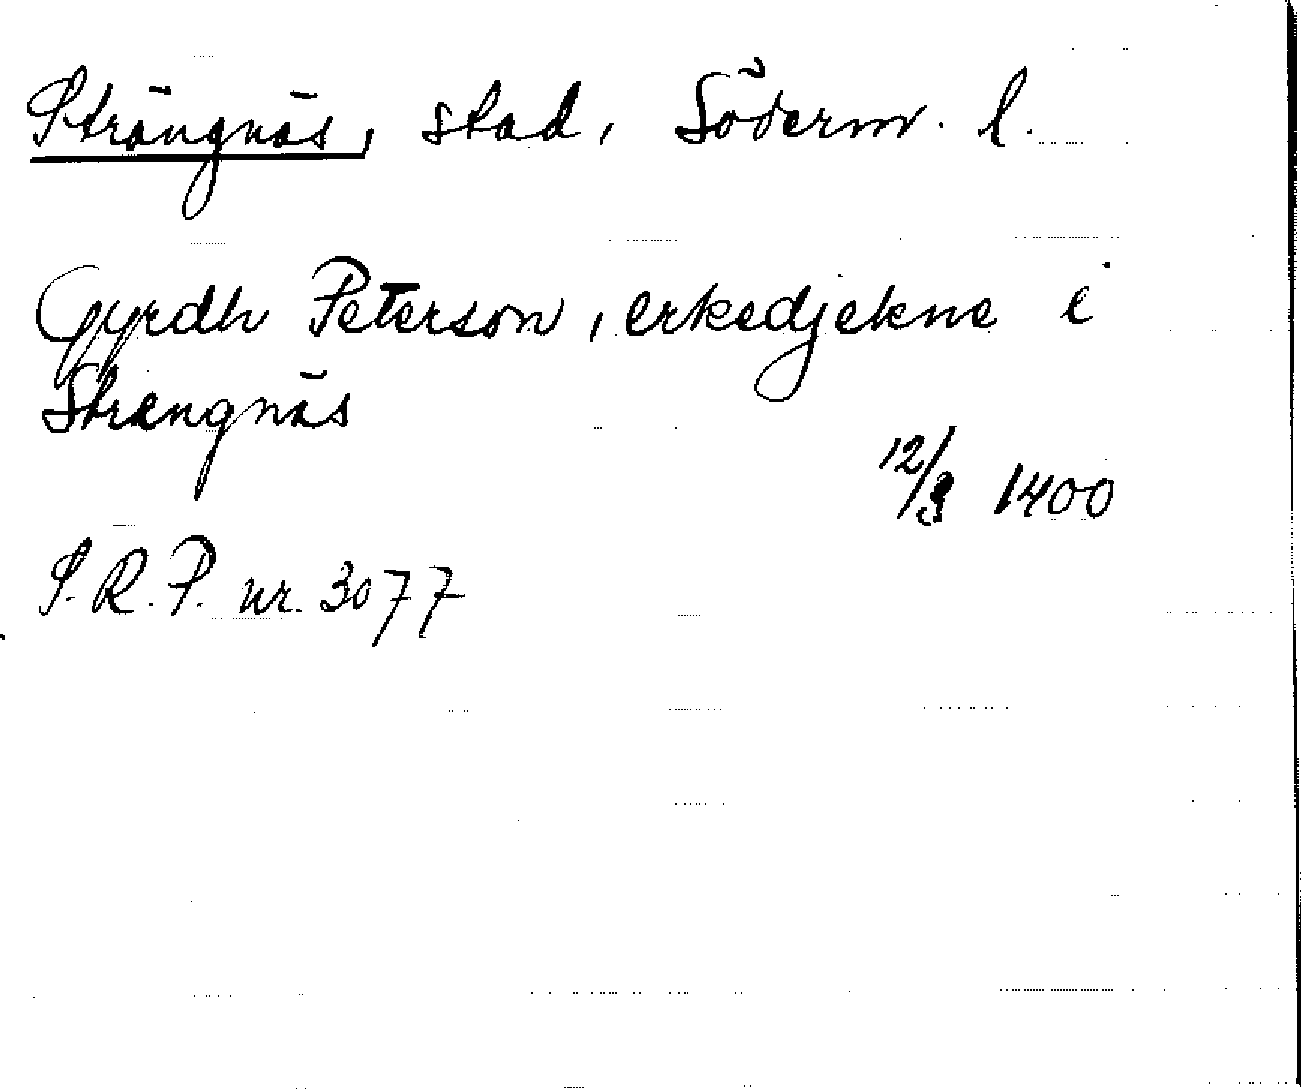 Strängnäs, stad, Söderm. l.
Gyrdh Peterson, erkedjekne i
Strengnäs
12/3 1400
S.R.P. nr. 3077